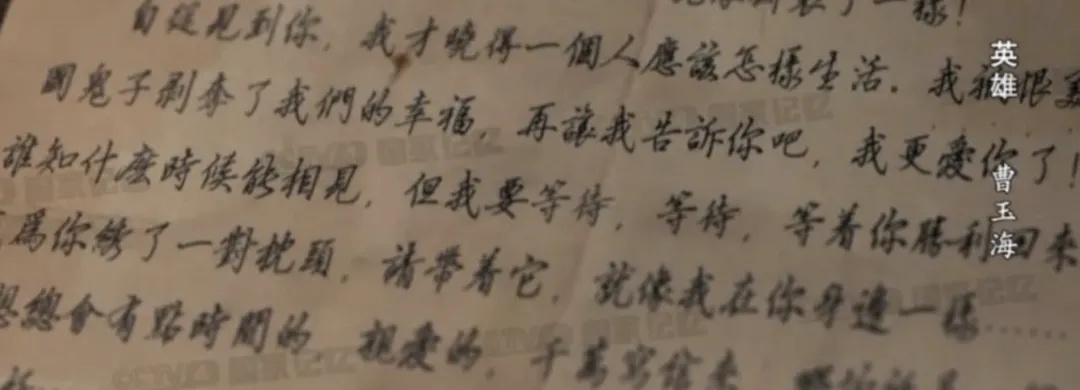 了一樣！
自從見到你，我才曉得一個人應該怎樣生活。我痛恨美
國鬼子剥奪了我們的幸福，再讓我告訴你吧，我更愛你了！
誰知什麽時候能相見，但我要等待，等待，等着你勝利回來
爲你綉了一對枕頭，請帶着它，就像我在你身邊一樣……
想總會有點時間的 親愛的，千萬寫信來
英雄 曹玉海